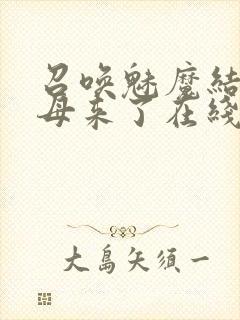 召唤魅魔结
母来了在线
大島矢須一